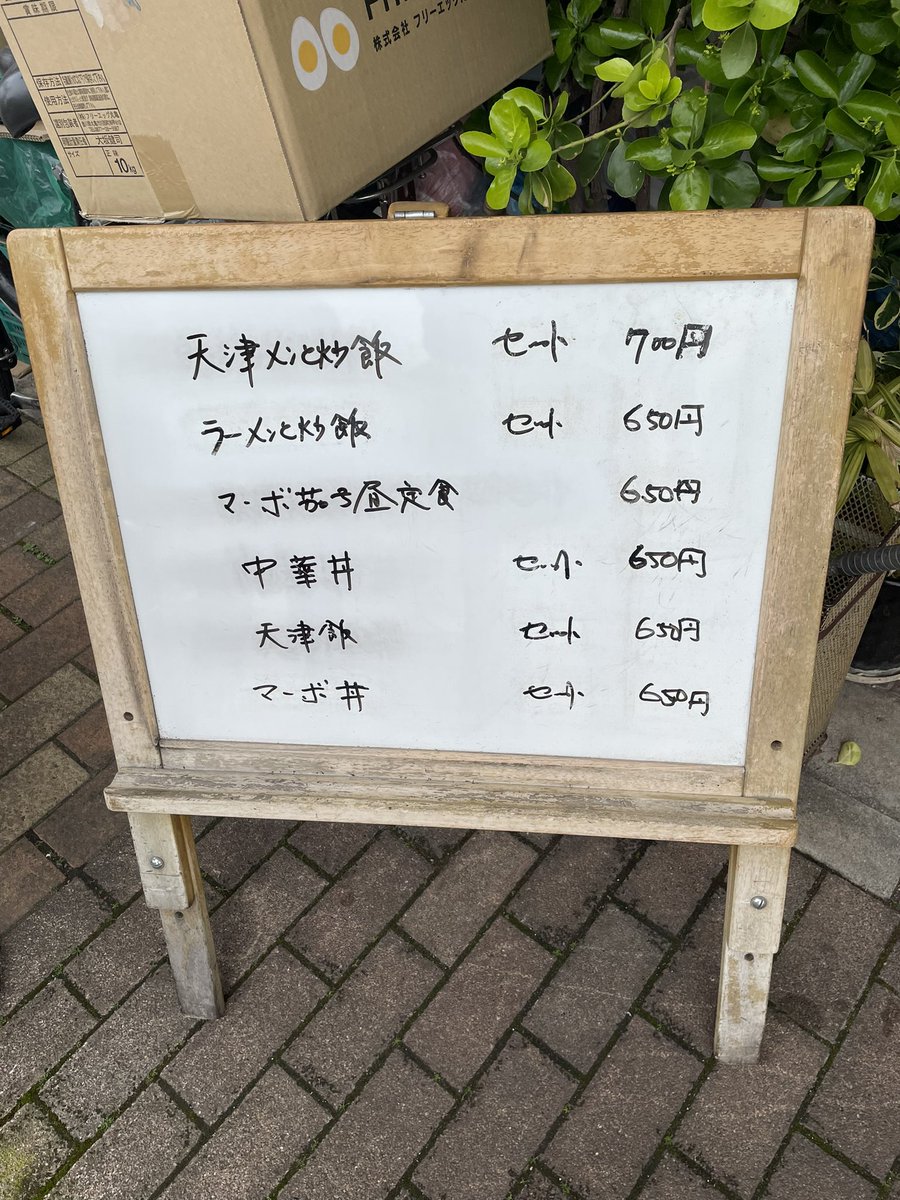 賞味期限
株式会社 フリーエッグ
保存方法
使用方法
サイズ
正味
10kg
天津メンと炒飯 セット 700円
ラーメンと炒飯 セット 650円
マーボ茄子昼定食 650円
中華丼 セット 650円
天津飯 セット 650円
マーボ丼 セット 650円